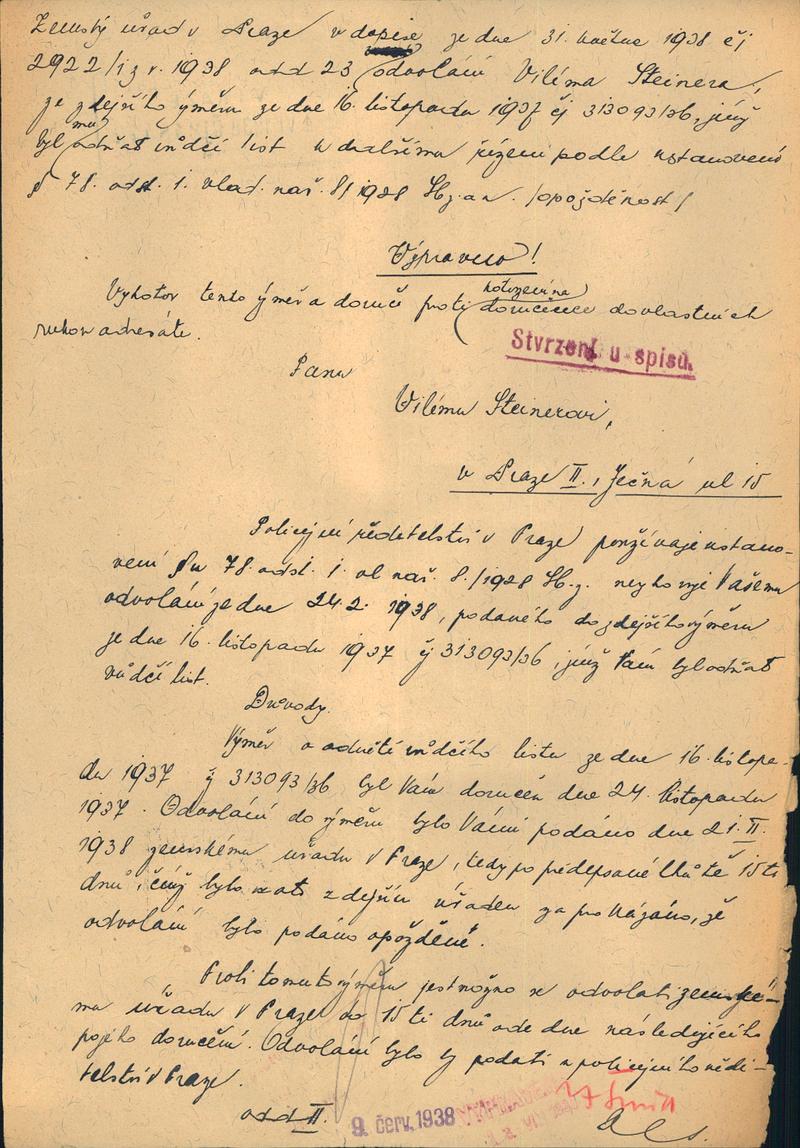 Zemský úřad v Praze v dopise ze dne 31. května 1938 čj
2922/1 z r. 1938 odd 23 odvolání Viléma Steinera,
ze zdejšího výměru ze dne 16. listopadu 1937 čj 313093/36, jímž
byl mu odňat vůdčí list k dalšímu řízení podle ustanovení
§ 78. odst. 1. vlád. nař. 8/1928 Sb. z. a n. /opožděnost/
Výpravno!
Vyhotov tento výměr a doruč proti doručence do vlastních
rukou adresáta.
Stvrzení u spisu.
Panu
Vilému Steinerovi,
v Praze II., Ječná ul 15
Policejní ředitelství v Praze používaje ustano-
vení §u 78. odst. 1. vl nař. 8./1928 Sb. z. nevyhovuje Vašemu
odvolání ze dne 24.2. 1938, podaného do zdejšího výměru
ze dne 16. listopadu 1937 čj 313093/36, jímž Vám byl odňat
vůdčí list.
Důvody.
Výměr o odnětí vůdčího listu ze dne 16. listopa-
du 1937 čj 313093/36 byl Vám doručen dne 24. listopadu
1937. Odvolání do výměru bylo Vámi podáno dne 21. II.
1938 zemskému úřadu v Praze, tedy po předepsané lhůtě 15ti
dnů, čímž bylo zdejším úřadem za prokázáno, že
odvolání bylo podáno opožděně.
Proti tomuto výměru jest možno se odvolati zemské-
mu úřadu v Praze do 15ti dnů ode dne následujícího
po jeho doručení. Odvolání bylo by podati u policejního ředi-
telství v Praze.
odd II.
9. červ. 1938